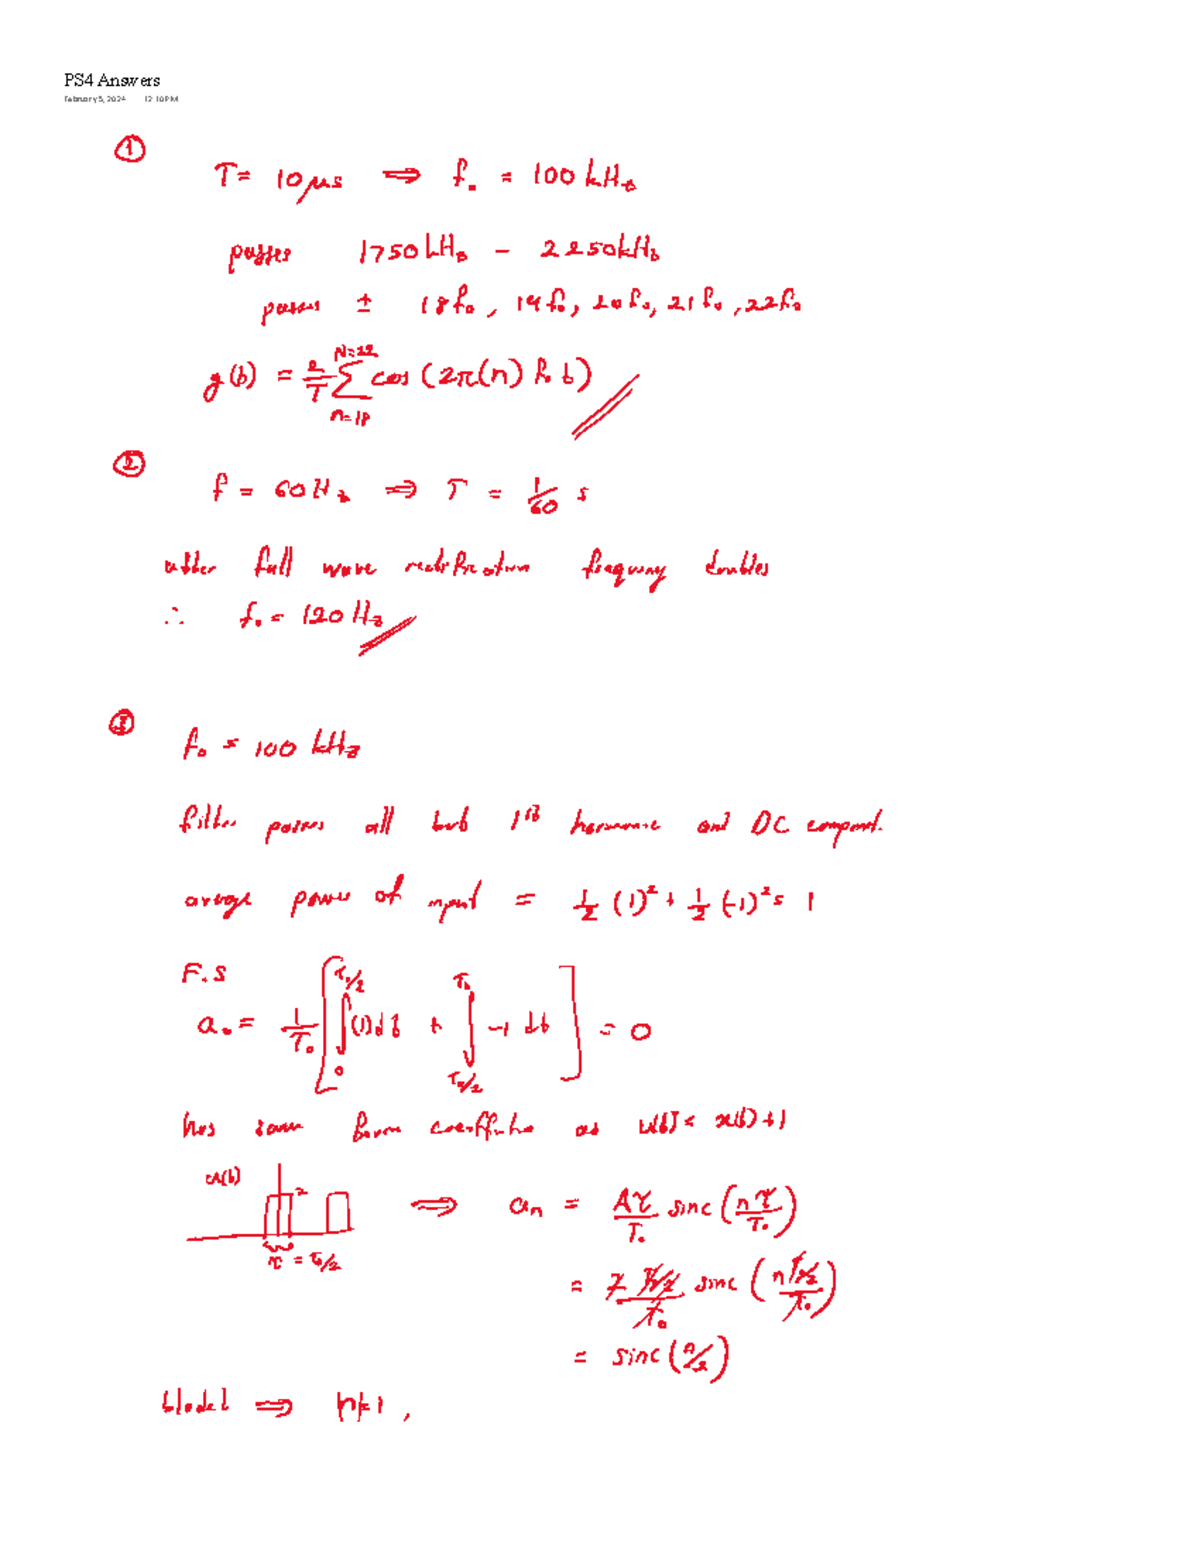 PS4 Answers
February 5, 2024 12:10 PM
①
T = 10 μs ⟹ f₀ = 100 kHz
passes 1750 kHz - 2250 kHz
passes ± 18f₀, 19f₀, 20f₀, 21f₀, 22f₀
g(t) = 2/T ∑_{n=18}^{N=22} cos(2π(n) f₀ t)
②
f = 60 Hz ⟹ T = 1/60 s
after full wave rectification frequency doubles
∴ f₀ = 120 Hz
③
f₀ = 100 kHz
filter passes all but 1st harmonic and DC component.
average power of input = 1/2 (1)² + 1/2 (-1)² = 1
F.S
a₀ = 1/T₀ [∫_0^{T₀/2} (1) dt + ∫_{T₀/2}^{T₀} -1 dt] = 0
has same form as = x(t) + 1
2 ⟹ aₙ = Aτ/T₀ sinc(nτ/T₀)
τ = T₀/2
= 2 T₀/2 / T₀ sinc(n T₀/2 / T₀)
= sinc(n/2)
⟹ n=1,